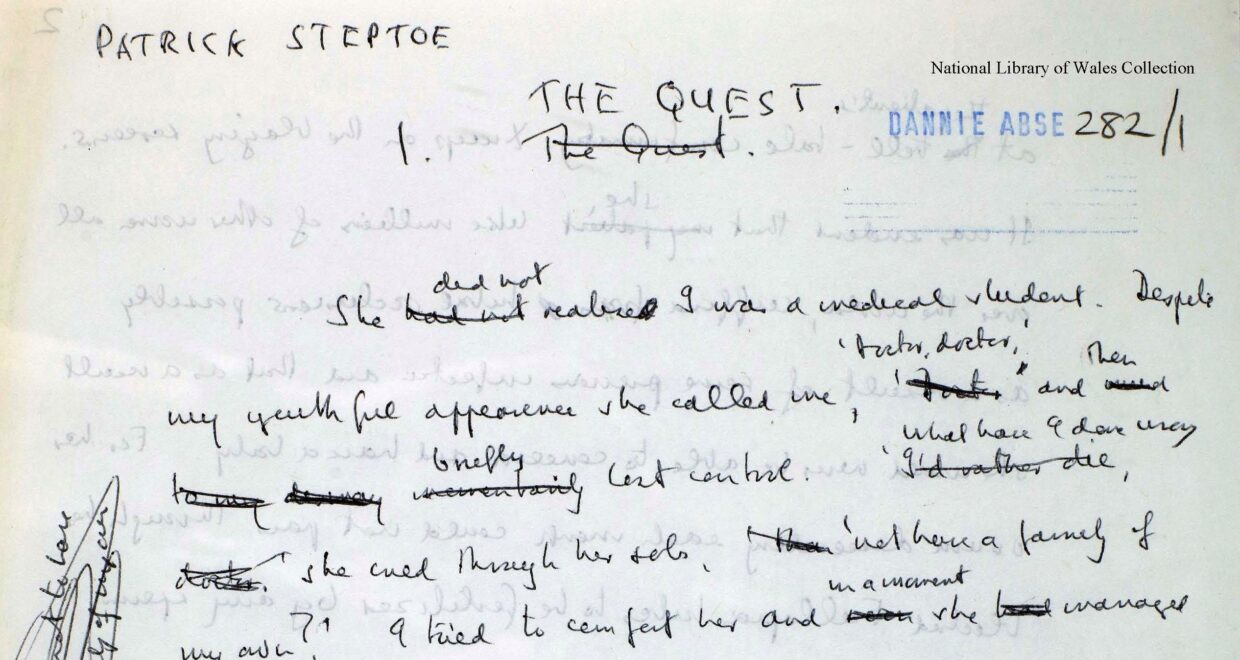 PATRICK STEPTOE
National Library of Wales Collection
THE QUEST.
DANNIE ABSE 282/1
1. The Quest.
did not
She had not realised I was a medical student. Despite
'Doctor, doctor,' then
my youthful appearance she called me, 'Doctor' and
what have I done wrong
briefly
to my dismay momentarily lost control. 'I'd rather die,
doctor.' she cried through her sobs, 'than not have a family of
in a moment
my own.'?' I tried to comfort her and soon she had managed